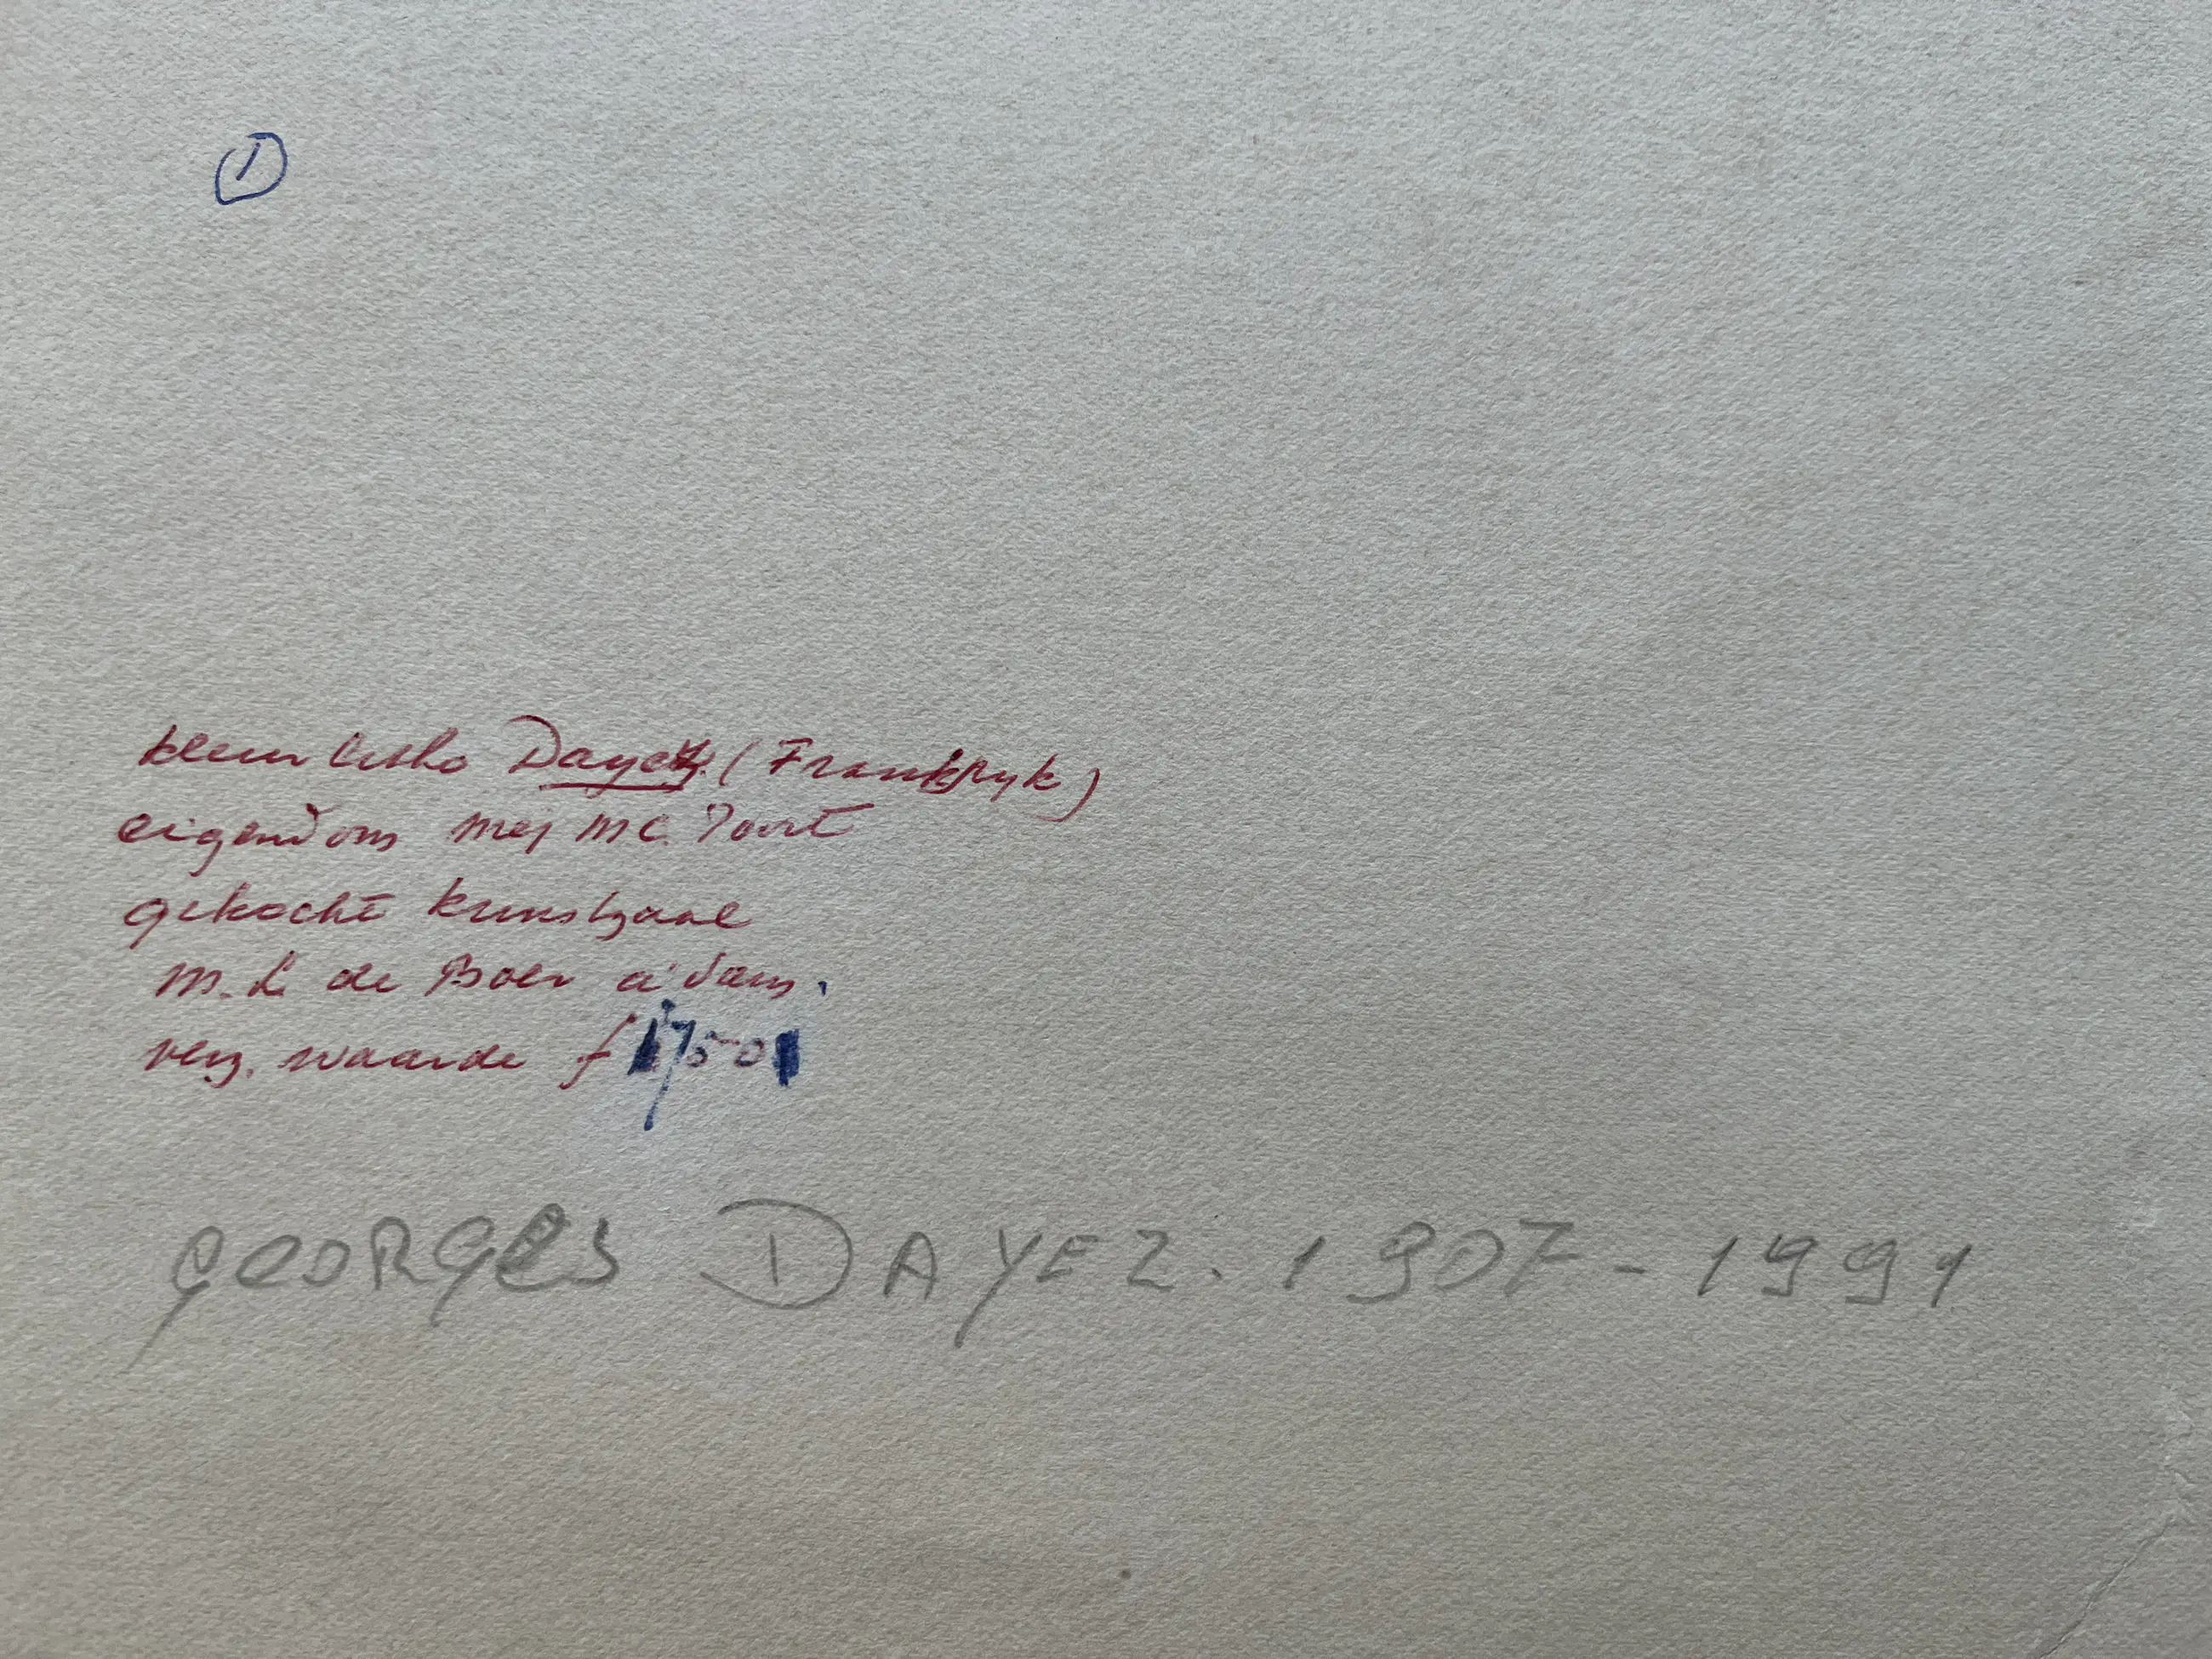 1
klein litho Dayez. (Frankryk)
eigendom mej M C. Poort
gekocht kunstzaal
M. L. de Boer a'dam.
verz. waarde f 750
GEORGES DAYEZ. 1907 - 1991